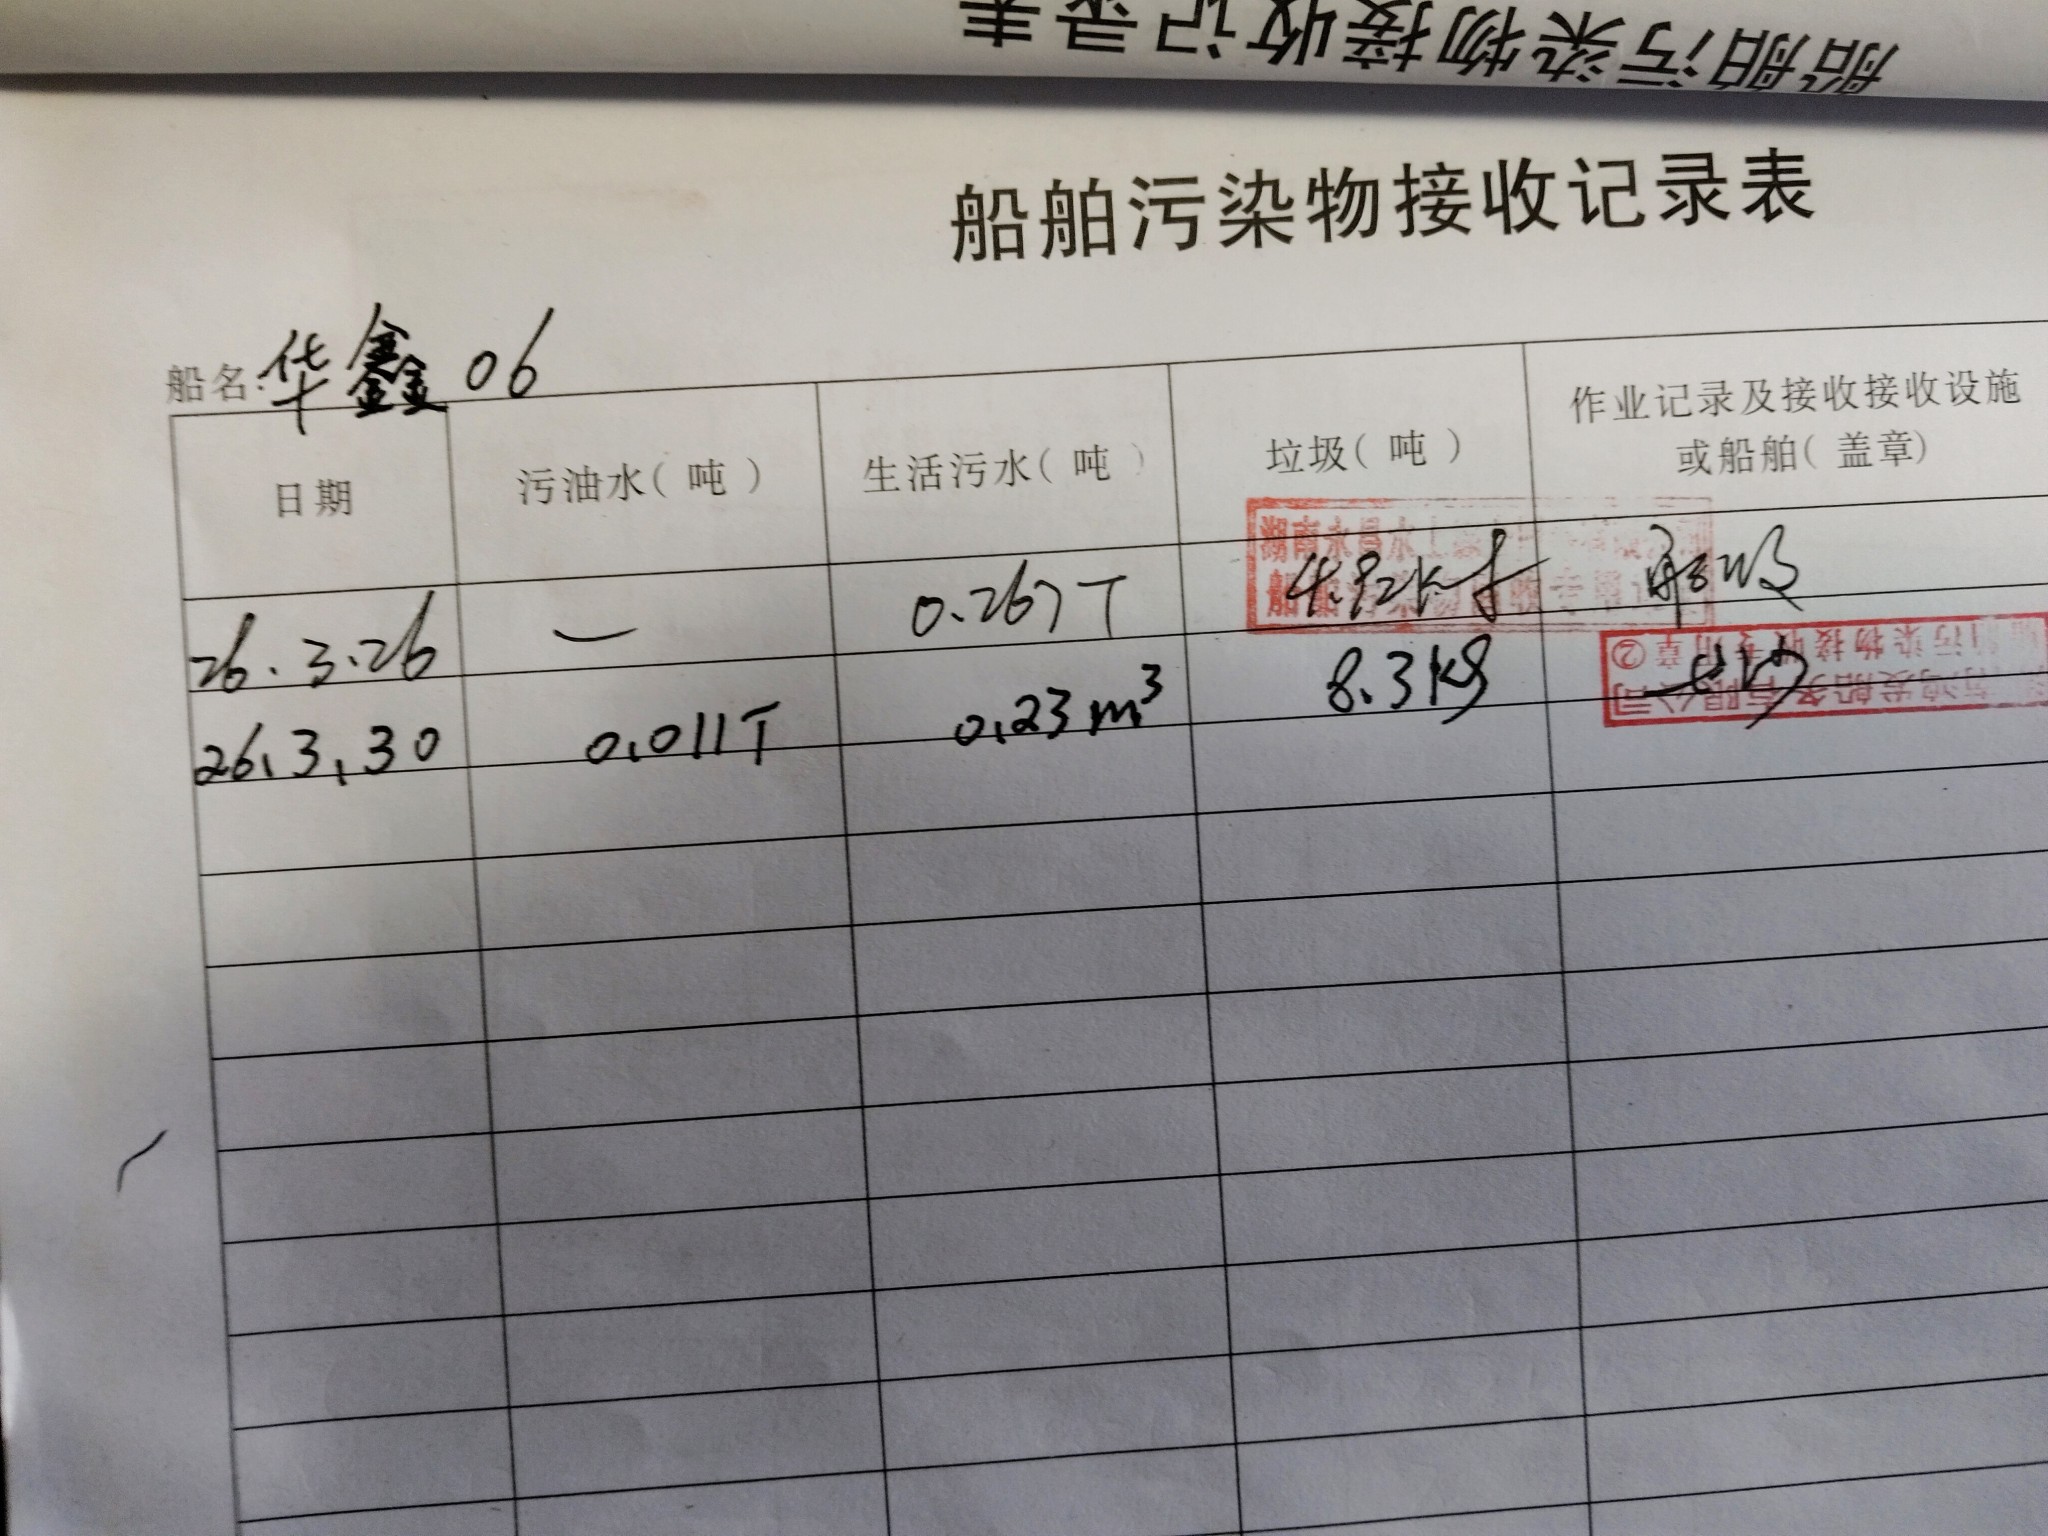 船舶污染物接收记录表
船舶污染物接收记录表
船名:华鑫06
日期 污油水(吨) 生活污水(吨) 垃圾(吨) 作业记录及接收接收设施
或船舶(盖章)
26.3.26 — 0.267T
26.3.30 0.011T 0.23m³ 8.3kg
船舶污染物接收专用章②